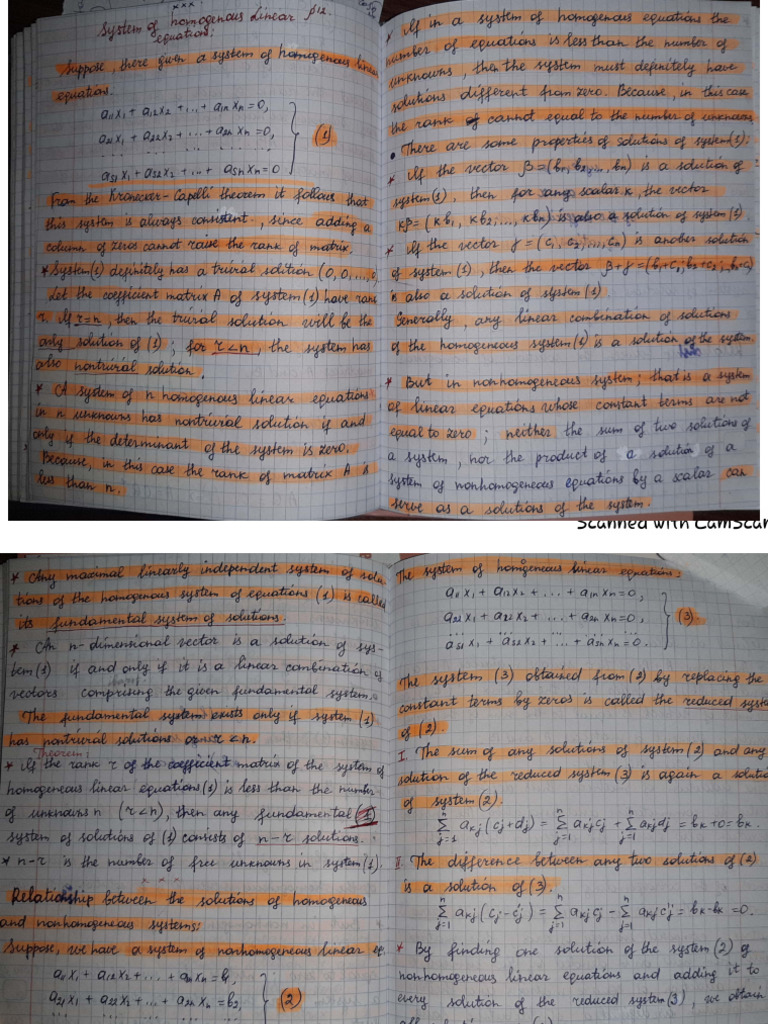 x x x
System of homogenous Linear β12.
equations:
Suppose, there given a system of homogenous linear
equations.
a₁₁x₁ + a₁₂x₂ + ... + a₁ₙxₙ = 0,
a₂₁x₁ + a₂₂x₂ + ... + a₂ₙxₙ = 0,
... ... ... ...
aₛ₁x₁ + aₛ₂x₂ + ... + aₛₙxₙ = 0
(1)
From the Kronecker-Capelli theorem it follows that
this system is always consistent, since adding a
column of zeros cannot raise the rank of matrix.
* System (1) definitely has a trivial solution (0,0,...,0)
Let the coefficient matrix A of system (1) have rank
r. If r=n, then the trivial solution will be the
only solution of (1); for r<n, the system has
also nontrivial solution.
* A system of n homogenous linear equations
in n unknowns has nontrivial solution if and
only if the determinant of the system is zero.
Because, in this case the rank of matrix A is
less than n.
* If in a system of homogenous equations the
number of equations is less than the number of
unknowns, then the system must definitely have
solutions different from zero. Because, in this case
the rank cannot equal to the number of unknowns
• There are some properties of solutions of system (1):
* If the vector β=(b₁,b₂,...,bₙ) is a solution of
system (1), then for any scalar k, the vector
kβ=(kb₁, kb₂,..., kbₙ) is also a solution of system (1)
* If the vector γ=(c₁,c₂,...,cₙ) is another solution
of system (1), then the vector β+γ=(b₁+c₁;b₂+c₂;..bₙ+cₙ)
is also a solution of system (1).
Generally, any linear combination of solutions
of the homogeneous system (1) is a solution of the system.
* But in nonhomogeneous system; that is a system
of linear equations whose constant terms are not
equal to zero; neither the sum of two solutions of
a system, nor the product of a solution of a
system of nonhomogeneous equations by a scalar can
serve as a solutions of the system.
Scanned with CamScan
* Any maximal linearly independent system of solu-
tions of the homogenous system of equations (1) is called
its fundamental system of solutions.
* An n-dimensional vector is a solution of sys-
tem (1) if and only if it is a linear combination of
vectors comprising the given fundamental system.
The fundamental system exists only if system (1)
has nontrivial solutions or r<n.
Theorem:
* If the rank r of the coefficient matrix of the system of
homogenous linear equations (1) is less than the number
of unknowns n (r<n), then any fundamental
system of solutions of (1) consists of n-r solutions.
* n-r is the number of free unknowns in system (1).
x x x
Relationship between the solutions of homogeneous
and nonhomogeneous systems:
Suppose, we have a system of nonhomogeneous linear eq.
a₁₁x₁ + a₁₂x₂ + ... + a₁ₙxₙ = b₁,
a₂₁x₁ + a₂₂x₂ + ... + a₂ₙxₙ = b₂,
(2)
The system of homogeneous linear equations:
a₁₁x₁ + a₁₂x₂ + ... + a₁ₙxₙ = 0,
a₂₁x₁ + a₂₂x₂ + ... + a₂ₙxₙ = 0,
... ... ... ...
aₛ₁x₁ + aₛ₂x₂ + ... + aₛₙxₙ = 0.
(3)
The system (3) obtained from (2) by replacing the
constant terms by zeros is called the reduced syste
of (2).
I. The sum of any solutions of system (2) and any
solution of the reduced system (3) is again a solutio
of system (2).
∑ⁿⱼ₌₁ aₖⱼ(cⱼ+dⱼ) = ∑ⁿⱼ₌₁ aₖⱼcⱼ + ∑ⁿⱼ₌₁ aₖⱼdⱼ = bₖ+0 = bₖ.
II. The difference between any two solutions of (2)
is a solution of (3).
∑ⁿⱼ₌₁ aₖⱼ(cⱼ-c'ⱼ) = ∑ⁿⱼ₌₁ aₖⱼcⱼ - ∑ⁿⱼ₌₁ aₖⱼc'ⱼ = bₖ-bₖ = 0.
* By finding one solution of the system (2) of
nonhomogeneous linear equations and adding it to
every solution of the reduced system (3), we obtain